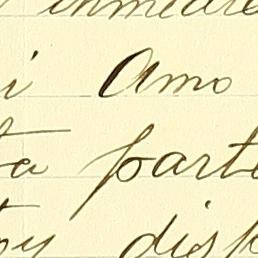 inmedia
i Amo
ta parte
oy disp